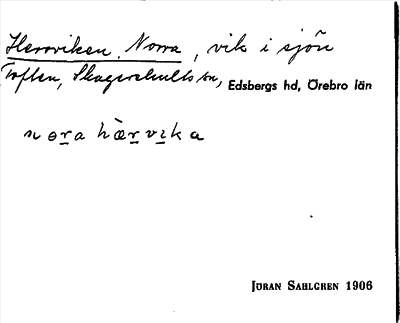 Herrviken, Norra, vik i sjön
Toften, Skagershults sn, Edsbergs hd, Örebro län
nora hæ̀rvika
Jöran Sahlgren 1906